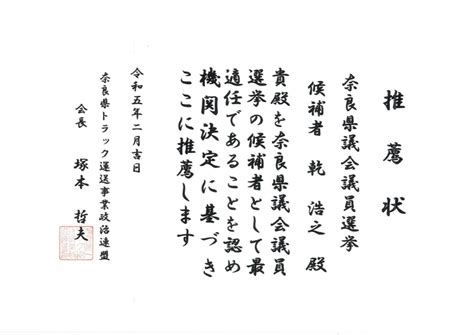 推薦状
奈良県議会議員選挙
候補者 乾 浩之 殿
貴殿を奈良県議会議員
選挙の候補者として最
適任であることを認め
機関決定に基づき
ここに推薦します
令和五年二月吉日
奈良県トラック運送事業政治連盟
会長 塚本 哲夫